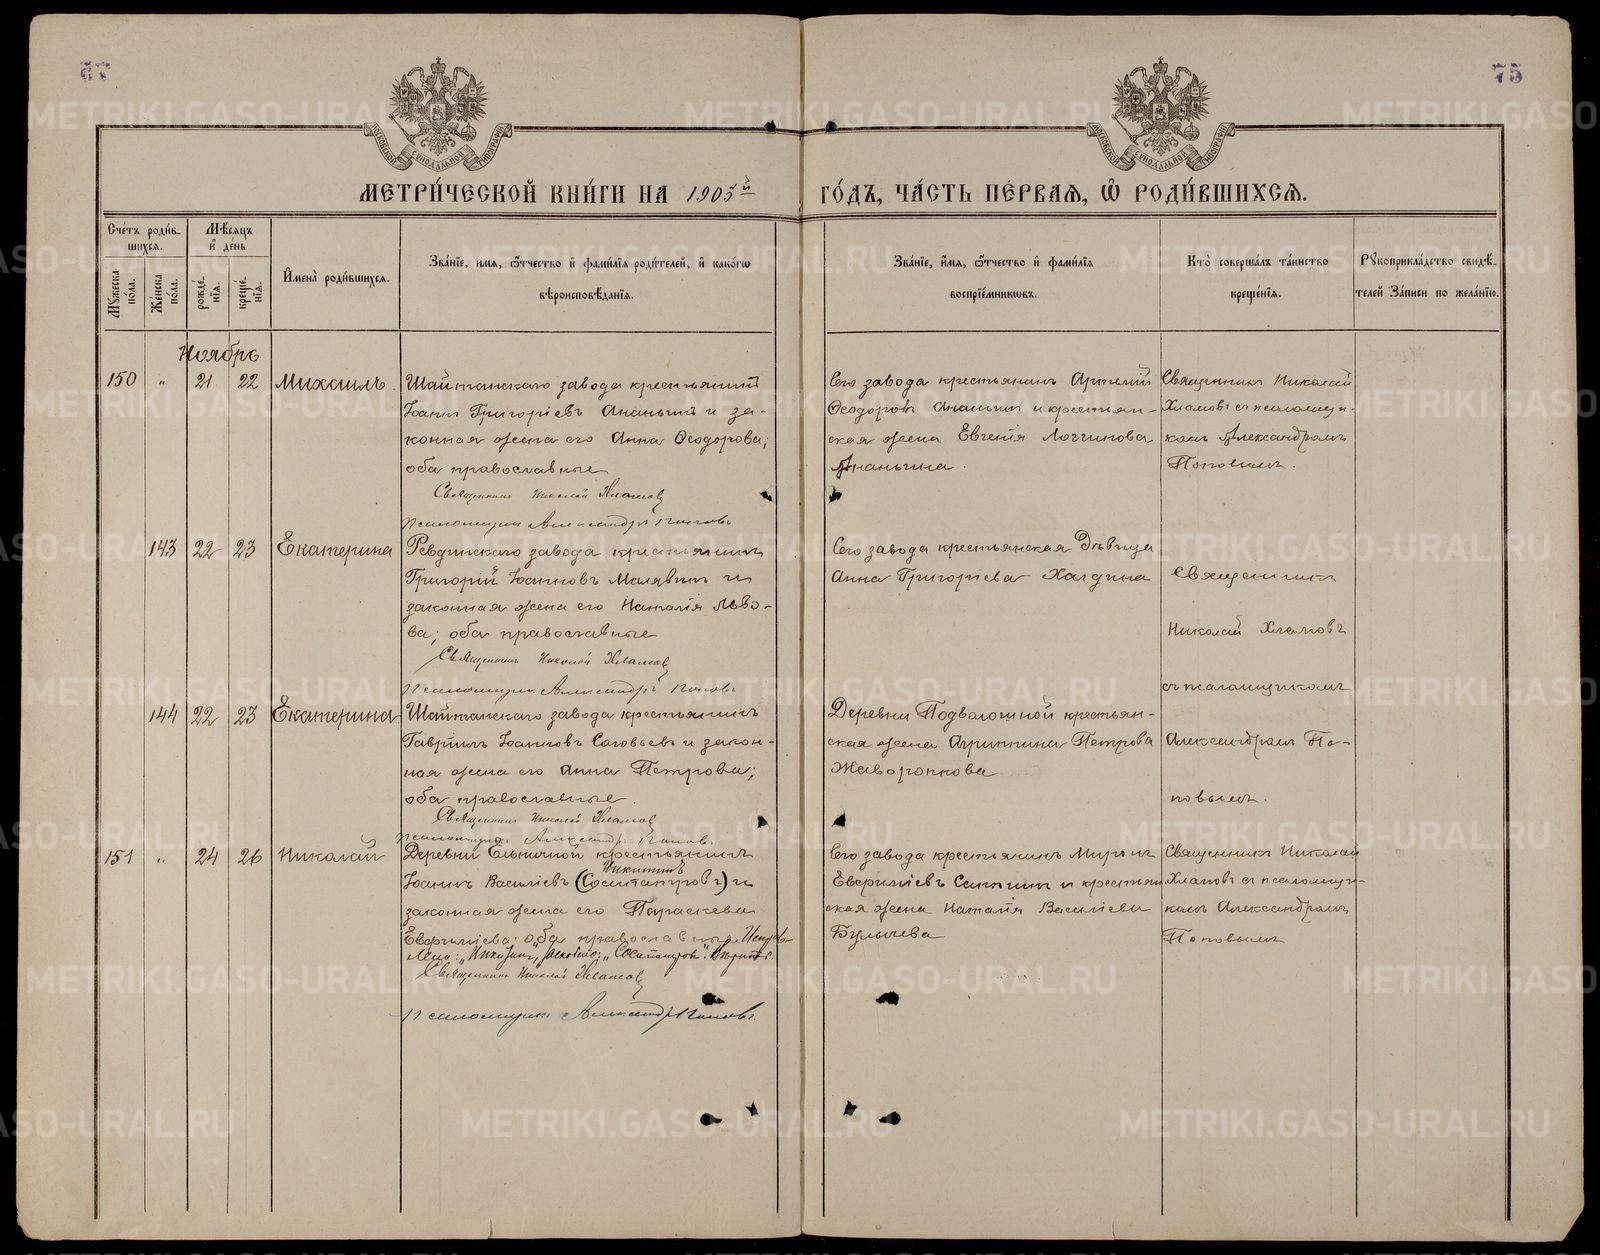 75
МЕТРИ́ЧЕСКОЙ КНИ́ГИ НА 1905й ГО́ДЪ, ЧА́СТЬ ПЕ́РВАЯ, Ѡ РОДИ́ВШИХСЯ.
МОСКОВСКОЙ СѴНОДАЛЬНОЙ ТИПОГРАФІИ
МОСКОВСКОЙ СѴНОДАЛЬНОЙ ТИПОГРАФІИ
Сче́тъ роди́в-
шихся.
Му́жеска по́ла.
Же́нска по́ла.
Мѣ́сяцъ
и де́нь
рожде́-
нія.
креще́-
нія.
Имена̀ роди́вшихся.
Зва́ніе, имя, ѻ҆́тчество и фами́лія роди́телей, и како́гѡ
вѣроисповѣ́данія.
Зва́ніе, имя, ѻ҆́тчество и фами́лія
воспріе́мникѡвъ.
Кто̀ соверша́лъ та́инство
креще́нія.
Рꙋкоприкла́дство свидѣ́-
телей за́писи по жела́нію.
Ноябрь
150 " 21 22 Михаилъ.
Шайтанскаго завода крестьянинъ
Іоаннъ Григоріевъ Ананьинъ и за-
конная жена его Анна Ѳеодорова;
оба православные
Священникъ Николай Хламовъ
Псаломщикъ Александръ Поповъ
Сего завода крестьянинъ Артемій
Ѳеодоровъ Ананьинъ и крестьян-
ская жена Евгенія Логгинова
Ананьина.
Священникъ Николай
Хламовъ съ псаломщи-
комъ Александромъ
Поповымъ.
143 22 23 Екатерина
Ревдинскаго завода крестьянинъ
Григорій Іоанновъ Малявинъ и
законная жена его Наталія Льво-
ва; оба православные
Священникъ Николай Хламовъ
Псаломщикъ Александръ Поповъ
Сего завода крестьянская дѣвица
Анна Григоріева Халдина
Священникъ
Николай Хламовъ
съ псаломщикомъ
144 22 23 Екатерина
Шайтанскаго завода крестьянинъ
Гавріилъ Іоанновъ Соловьевъ и закон-
ная жена его Анна Петрова;
оба православные.
Священникъ Николай Хламовъ
Псаломщикъ Александръ Поповъ.
Деревни Подволошной крестьян-
ская жена Агриппина Петрова
Жаворонкова
Александромъ По-
повымъ.
151 " 24 26 Николай
Деревни Ельничной крестьянинъ
Никитинъ
Іоаннъ Василіевъ (Сосипатровъ) и
законная жена его Параскева
Евфиміева; оба православные.
Священникъ Николай Хламовъ
Псаломщикъ Александръ Поповъ.
Сего завода крестьянинъ Миронъ
Евфиміевъ и крестьян-
ская жена Наталія Василіева
Булычева
Священникъ Николай
Хламовъ съ псаломщи-
комъ Александромъ
Поповымъ
METRIKI.GASO-URAL.RU